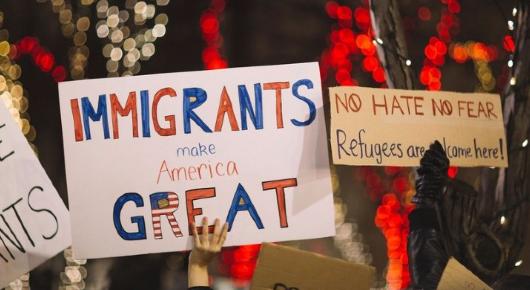 IMMIGRANTS
make
America
GREAT
NO HATE NO FEAR
Refugees are here!
NTS